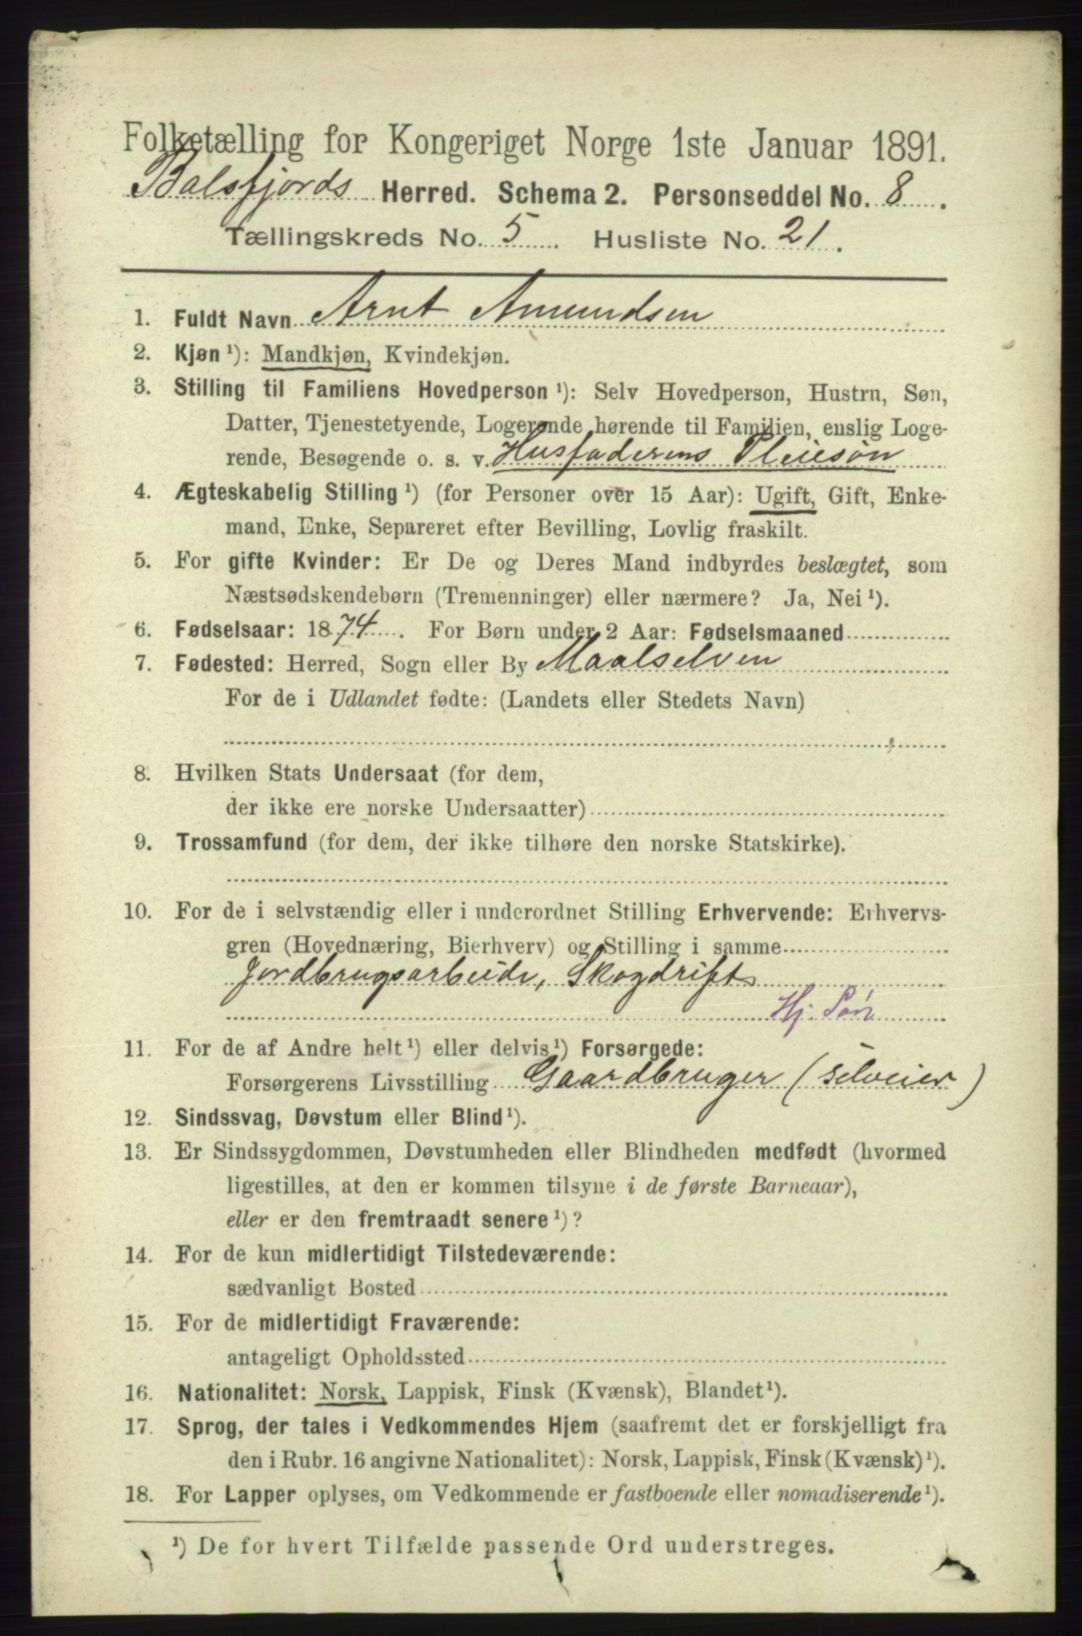 Folketælling for Kongeriget Norge 1ste Januar 1891.
Balsfjords Herred. Schema 2. Personseddel No. 8.
Tællingskreds No. 5. Husliste No. 21.
1. Fuldt Navn Arnt Amundsen
2. Kjøn ¹): Mandkjøn, Kvindekjøn.
3. Stilling til Familiens Hovedperson ¹): Selv Hovedperson, Hustru, Søn,
Datter, Tjenestetyende, Logerende hørende til Familien, enslig Loge-
rende, Besøgende o. s. v. Husfaderens Pleiesøn
4. Ægteskabelig Stilling ¹) (for Personer over 15 Aar): Ugift, Gift, Enke-
mand, Enke, Separeret efter Bevilling, Lovlig fraskilt.
5. For gifte Kvinder: Er De og Deres Mand indbyrdes beslægtet, som
Næstsødskendebørn (Tremenninger) eller nærmere? Ja, Nei ¹).
6. Fødselsaar: 1874. For Børn under 2 Aar: Fødselsmaaned
7. Fødested: Herred, Sogn eller By Maalselven
For de i Udlandet fødte: (Landets eller Stedets Navn)
8. Hvilken Stats Undersaat (for dem,
der ikke ere norske Undersaatter)
9. Trossamfund (for dem, der ikke tilhøre den norske Statskirke).
10. For de i selvstændig eller i underordnet Stilling Erhvervende: Erhvervs-
gren (Hovednæring, Bierhverv) og Stilling i samme
Jordbrugsarbeide, Skogdrift
Hj. Søn
11. For de af Andre helt ¹) eller delvis ¹) Forsørgede:
Forsørgerens Livsstilling Gaardbruger (selveier)
12. Sindssvag, Døvstum eller Blind ¹).
13. Er Sindssygdommen, Døvstumheden eller Blindheden medfødt (hvormed
ligestilles, at den er kommen tilsyne i de første Barneaar),
eller er den fremtraadt senere ¹)?
14. For de kun midlertidigt Tilstedeværende:
sædvanligt Bosted
15. For de midlertidigt Fraværende:
antageligt Opholdssted
16. Nationalitet: Norsk, Lappisk, Finsk (Kvænsk), Blandet ¹).
17. Sprog, der tales i Vedkommendes Hjem (saafremt det er forskjelligt fra
den i Rubr. 16 angivne Nationalitet): Norsk, Lappisk, Finsk (Kvænsk) ¹).
18. For Lapper oplyses, om Vedkommende er fastboende eller nomadiserende ¹).
¹) De for hvert Tilfælde passende Ord understreges.